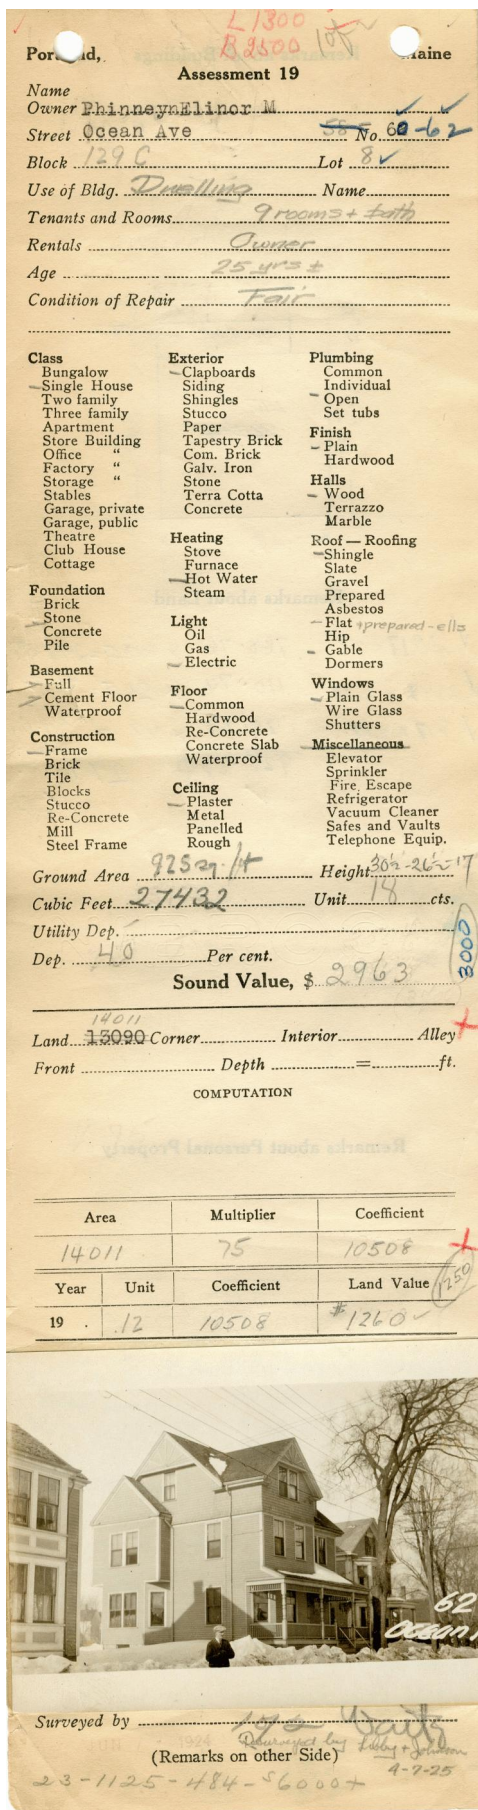 L 1300
B 2500
Portland, Maine
Assessment 19
Name
Owner PhinneynElinor M
Street Ocean Ave 58 No. 60-62
Block 129 C Lot 8
Use of Bldg. Dwelling Name
Tenants and Rooms 9 rooms + bath
Rentals Owner
Age 25 yrs ±
Condition of Repair Fair
Class
Bungalow
Single House
Two family
Three family
Apartment
Store Building
Office "
Factory "
Storage "
Stables
Garage, private
Garage, public
Theatre
Club House
Cottage
Foundation
Brick
Stone
Concrete
Pile
Basement
Full
Cement Floor
Waterproof
Construction
Frame
Brick
Tile
Blocks
Stucco
Re-Concrete
Mill
Steel Frame
Exterior
Clapboards
Siding
Shingles
Stucco
Paper
Tapestry Brick
Com. Brick
Galv. Iron
Stone
Terra Cotta
Concrete
Heating
Stove
Furnace
Hot Water
Steam
Light
Oil
Gas
Electric
Floor
Common
Hardwood
Re-Concrete
Concrete Slab
Waterproof
Ceiling
Plaster
Metal
Panelled
Rough
Plumbing
Common
Individual
Open
Set tubs
Finish
Plain
Hardwood
Halls
Wood
Terrazzo
Marble
Roof — Roofing
Shingle
Slate
Gravel
Prepared
Asbestos
Flat + prepared - ells
Hip
Gable
Dormers
Windows
Plain Glass
Wire Glass
Shutters
Miscellaneous
Elevator
Sprinkler
Fire Escape
Refrigerator
Vacuum Cleaner
Safes and Vaults
Telephone Equip.
Ground Area 925 sq. ft Height 30½-26½-17
Cubic Feet 27432 Unit 18 cts.
Utility Dep.
Dep. 40 Per cent.
Sound Value, $ 2963
3000
14011
Land 13090 Corner Interior Alley
Front Depth = ft.
COMPUTATION
Area Multiplier Coefficient
14011 75 10508
Year Unit Coefficient Land Value 1250
19 . .12 10508 $1260
62
Ocean
Surveyed by
Resurveyed by Libby + Johnson
(Remarks on other Side) 4-7-25
23-1125-484-$6000+